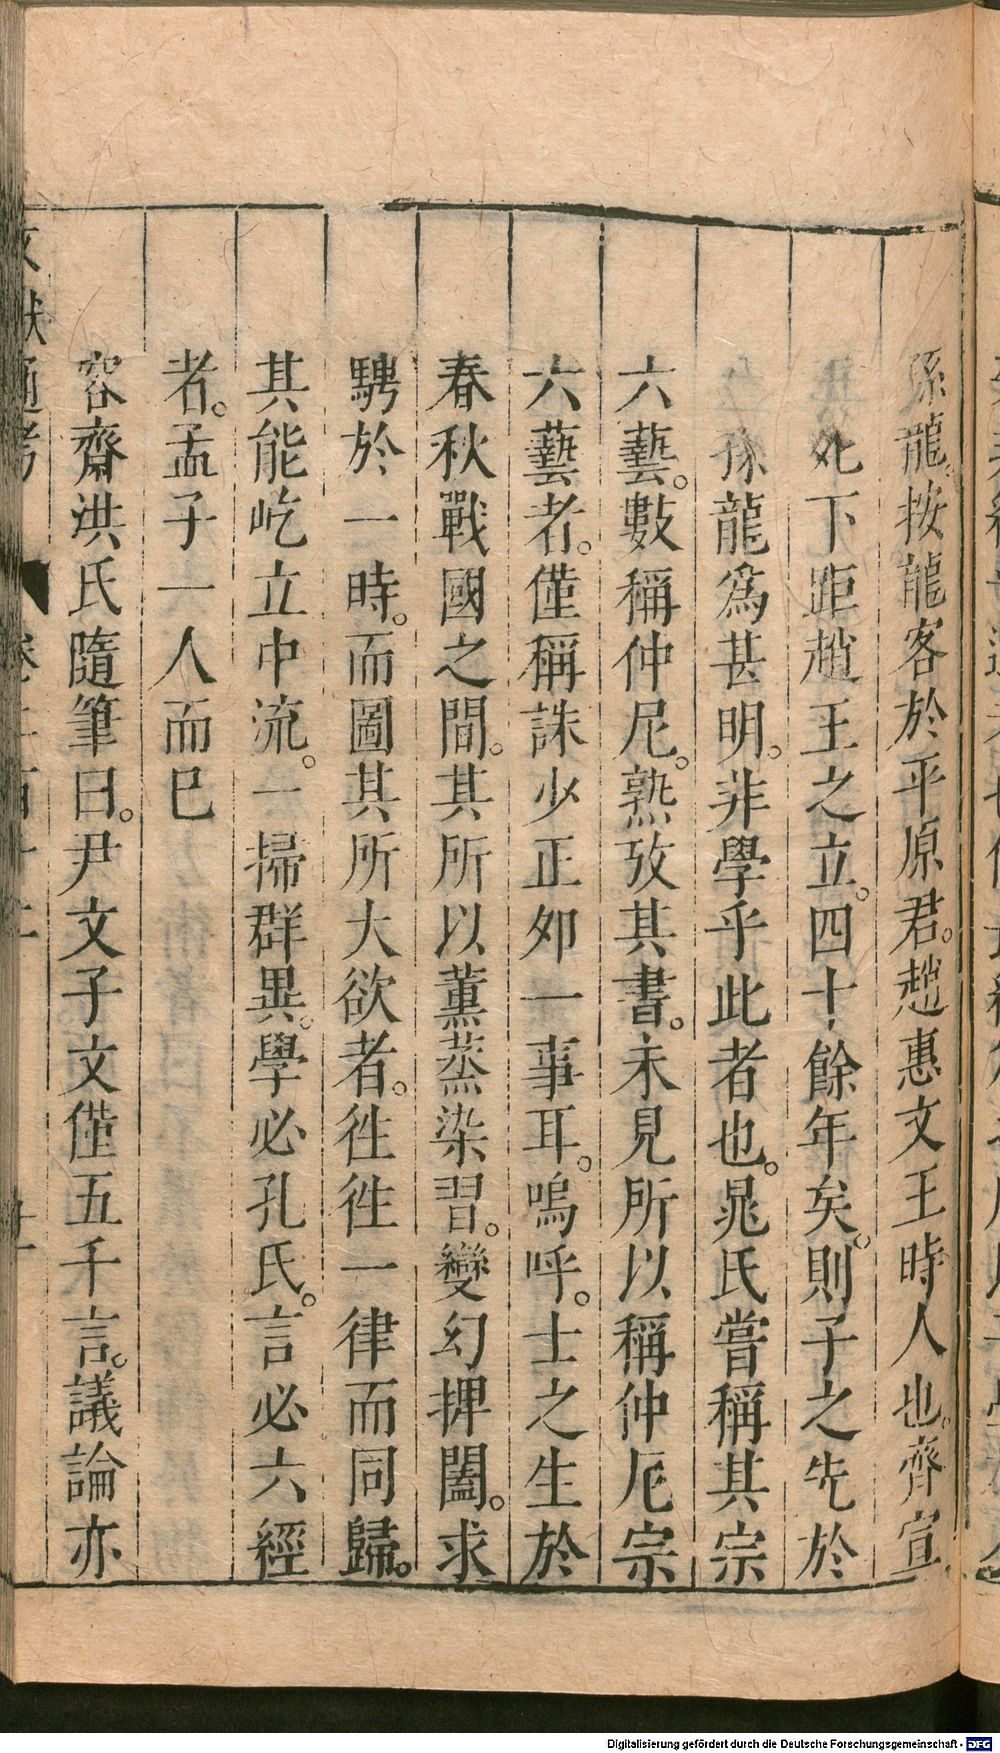 孫龍。按龍客於平原君。趙惠文王時人也。齊宣
死下距趙王之立。四十餘年矣。則子之先於
孫龍爲甚明。非學乎此者也。晁氏嘗稱其宗
六藝。數稱仲尼。熟攷其書。未見所以稱仲尼宗
六藝者。僅稱誅少正卯一事耳。嗚呼。士之生於
春秋戰國之間。其所以薰蒸染習。變幻捭闔。求
騁於一時。而圖其所大欲者。徃徃一律而同歸。
其能屹立中流。一掃群異。學必孔氏。言必六經
者。孟子一人而已
容齋洪氏隨筆曰。尹文子文僅五千言。議論亦
Digitalisierung gefördert durch die Deutsche Forschungsgemeinschaft - DFG